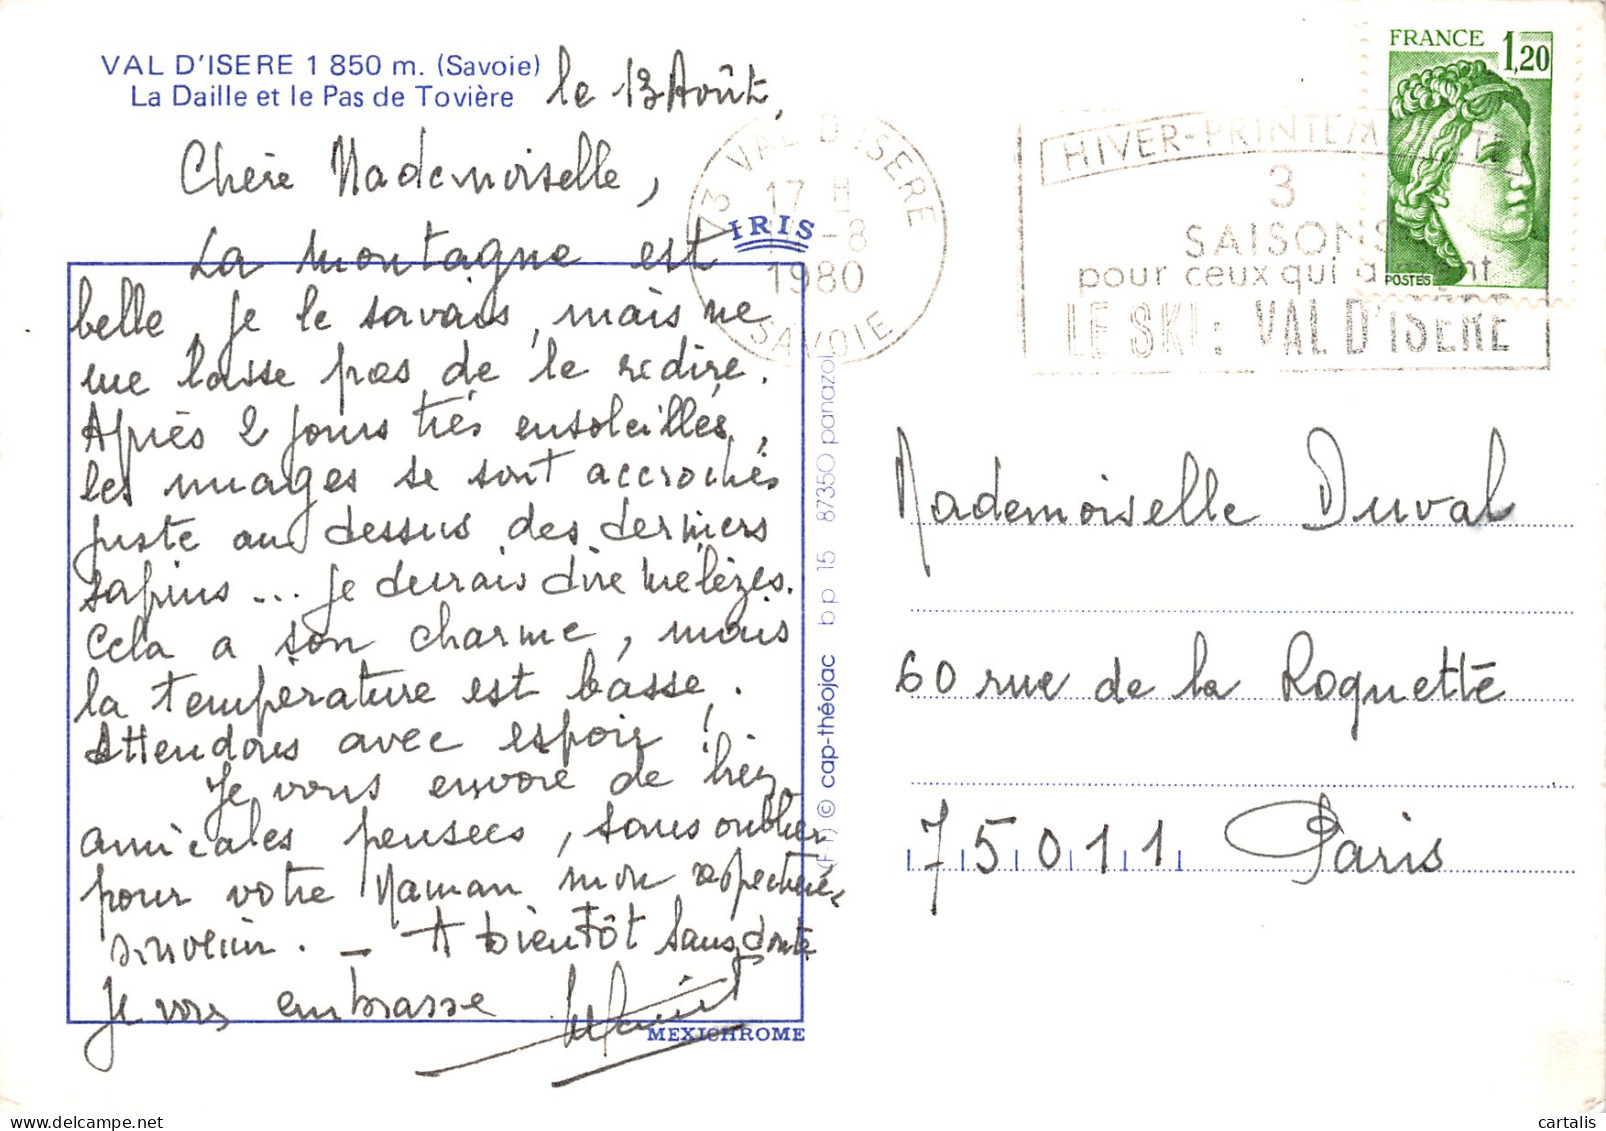 VAL D'ISERE 1 850 m. (Savoie)
La Daille et le Pas de Tovière
le 13 Août,
Chère Mademoiselle,
La montagne est
belle, je le savais, mais ne
me lasse pas de le redire.
Après 2 jours très ensoleillés,
les nuages se sont accrochés
juste au dessus des derniers
sapins ... je devrais dire mélèzes.
Cela a son charme, mais
la température est basse.
Attendons avec espoir !
Je vous envoie de bien
amicales pensées, sans oublier
pour votre Maman mon respectueux
souvenir. — A bientôt sans doute
Je vous embrasse
MEXICHROME
IRIS
(F-1) © cap-théojac bp 15 87350 panazol
73 VAL D'ISERE
17 H
-8
1980
SAVOIE
HIVER-PRINTEM
3
SAISONS
pour ceux qui
LE SKI : VAL D'ISÈRE
FRANCE 1,20
POSTES
Mademoiselle Duval
60 rue de la Roquette
75011 Paris
cartalis